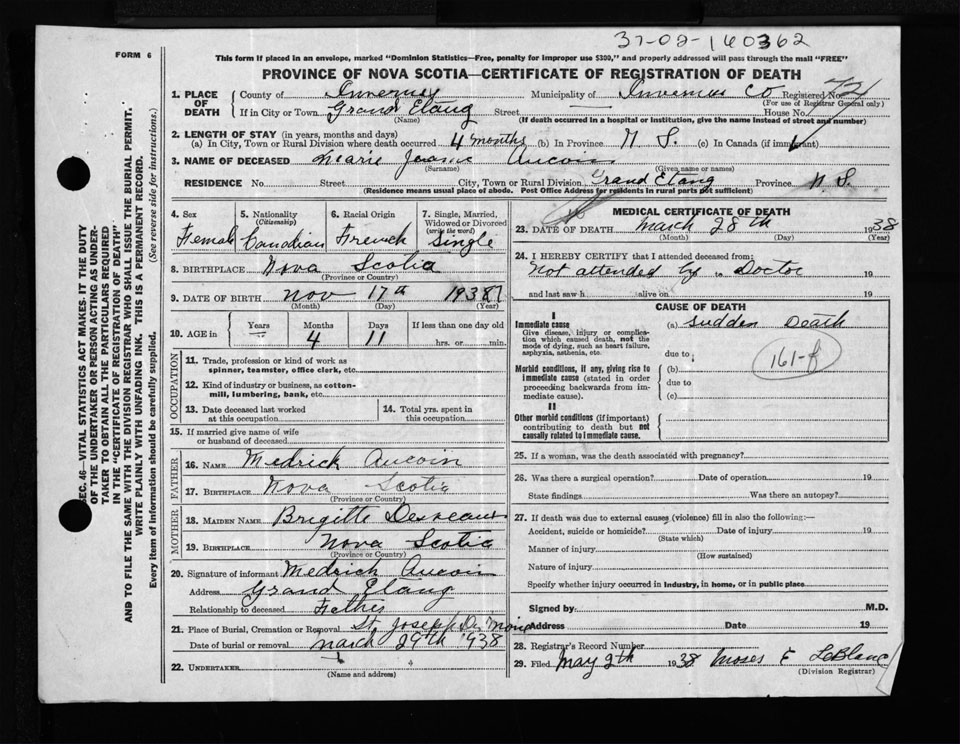 37-02-160362
FORM 6
This form if placed in an envelope, marked "Dominion Statistics—Free, penalty for improper use $300," and properly addressed will pass through the mail "FREE"
PROVINCE OF NOVA SCOTIA—CERTIFICATE OF REGISTRATION OF DEATH
1. PLACE OF DEATH County of Inverness Municipality of Inverness Co Registered No. 72
(For use of Registrar General only)
If in City or Town Grand Etang Street House No.
(Name) (If death occurred in a hospital or institution, give the name instead of street and number)
2. LENGTH OF STAY (in years, months and days)
(a) In City, Town or Rural Division where death occurred 4 months (b) In Province N S. (c) In Canada (if immigrant)
3. NAME OF DECEASED Marie Jeanne Aucoin
(Surname) (Given name or names)
RESIDENCE No. Street City, Town or Rural Division Grand Etang Province N S.
(Residence means usual place of abode. Post Office Address for residents in rural parts not sufficient)
4. Sex 5. Nationality (Citizenship) 6. Racial Origin 7. Single, Married, Widowed or Divorced (write the word)
Female Canadian French Single
8. BIRTHPLACE Nova Scotia
(Province or Country)
9. DATE OF BIRTH Nov 17th 1937
(Month) (Day) (Year)
10. AGE in Years Months Days If less than one day old
4 11 hrs. or min.
OCCUPATION
11. Trade, profession or kind of work as spinner, teamster, office clerk, etc.
12. Kind of industry or business, as cotton-mill, lumbering, bank, etc.
13. Date deceased last worked at this occupation
14. Total yrs. spent in this occupation
15. If married give name of wife or husband of deceased
FATHER
16. NAME Medrick Aucoin
17. BIRTHPLACE Nova Scotia
(Province or Country)
MOTHER
18. MAIDEN NAME Brigitte Desveaux
19. BIRTHPLACE Nova Scotia
(Province or Country)
20. Signature of informant Medrick Aucoin
Address Grand Etang
Relationship to deceased Father
21. Place of Burial, Cremation or Removal St. Joseph Du Moine
Date of burial or removal March 29th 1938
22. UNDERTAKER
(Name and address)
MEDICAL CERTIFICATE OF DEATH
23. DATE OF DEATH March 28th 1938
(Month) (Day) (Year)
24. I HEREBY CERTIFY that I attended deceased from:
Not attended by to Doctor 19
and last saw h alive on 19
CAUSE OF DEATH
I
Immediate cause (a) Sudden Death
Give disease, injury or complication which caused death, not the mode of dying, such as heart failure, asphyxia, asthenia, etc.
due to 161-f
Morbid conditions, if any, giving rise to immediate cause (stated in order proceeding backwards from immediate cause).
(b)
due to
(c)
II
Other morbid conditions (if important) contributing to death but not causally related to immediate cause.
25. If a woman, was the death associated with pregnancy?
26. Was there a surgical operation? Date of operation 19
State findings Was there an autopsy?
27. If death was due to external causes (violence) fill in also the following:—
Accident, suicide or homicide? Date of injury 19
(State which)
Manner of injury
(How sustained)
Nature of injury
Specify whether injury occurred in industry, in home, or in public place
Signed by M.D.
Address Date 19
28. Registrar's Record Number
29. Filed May 2th 1938 Moses E LeBlanc
(Division Registrar)
SEC. 46—VITAL STATISTICS ACT MAKES IT THE DUTY
OF THE UNDERTAKER OR PERSON ACTING AS UNDERTAKER
TO OBTAIN ALL THE PARTICULARS REQUIRED
IN THE "CERTIFICATE OF REGISTRATION OF DEATH"
AND TO FILE THE SAME WITH THE DIVISION REGISTRAR WHO SHALL ISSUE THE BURIAL PERMIT.
WRITE PLAINLY WITH UNFADING INK. THIS IS A PERMANENT RECORD.
Every item of information should be carefully supplied. (See reverse side for instructions.)